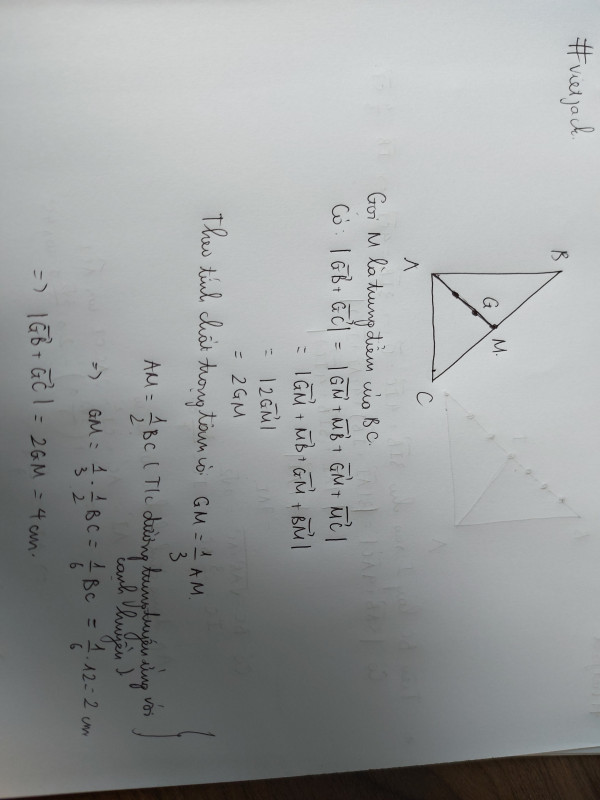 #vietjack.
B
A
G
M.
C
Gọi M là trung điểm của BC.
Có: |GB + GC| = |GM + MB + GM + MC|
= |GM + MB + GM + BM|
= |2GM|
= 2GM
Theo tính chất trọng tâm có GM = 1/3 AM.
AM = 1/2 BC (T/c đường trung tuyến ứng với
cạnh huyền)
=> GM = 1/3 . 1/2 BC = 1/6 BC = 1/6 . 12 = 2 cm
=> |GB + GC| = 2GM = 4 cm.